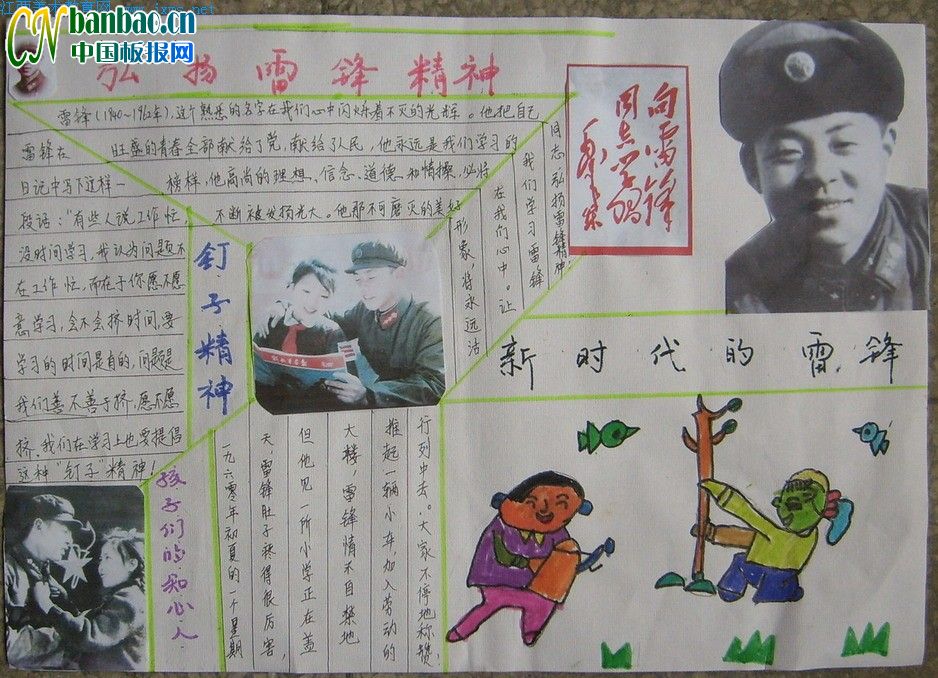 江西美术教育网 www.jxms.net
CN banbao.cn
中国板报网
弘扬雷锋精神
雷锋(1940~1962年),这个熟悉的名字在我们心中闪烁着不灭的光辉。他把自己
旺盛的青春全部献给了党,献给了人民,他永远是我们学习的
榜样,他高尚的理想、信念、道德和情操,必将
不断被发扬光大。他那不可磨灭的美好
形象,将永远活
在我们心中。让
我们学习雷锋
同志弘扬雷锋精神!
向雷锋
同志学习
毛泽东
雷锋在
日记中写下这样一
段话:"有些人说工作忙
没时间学习,我认为问题不
在工作忙,而在于你愿不愿
意学习,会不会挤时间,要
学习的时间是有的,问题是
我们善不善于挤,愿不愿
挤,我们在学习上也要提倡
这种"钉子"精神!
钉子精神
新时代的雷锋
孩子们的知心人
一九六零年初夏的一个星期
天,雷锋肚子疼得很厉害,
但他见一所小学正在盖
大楼,雷锋情不自禁地
推起一辆小车,加入劳动的
行列中去。大家不停地称赞,